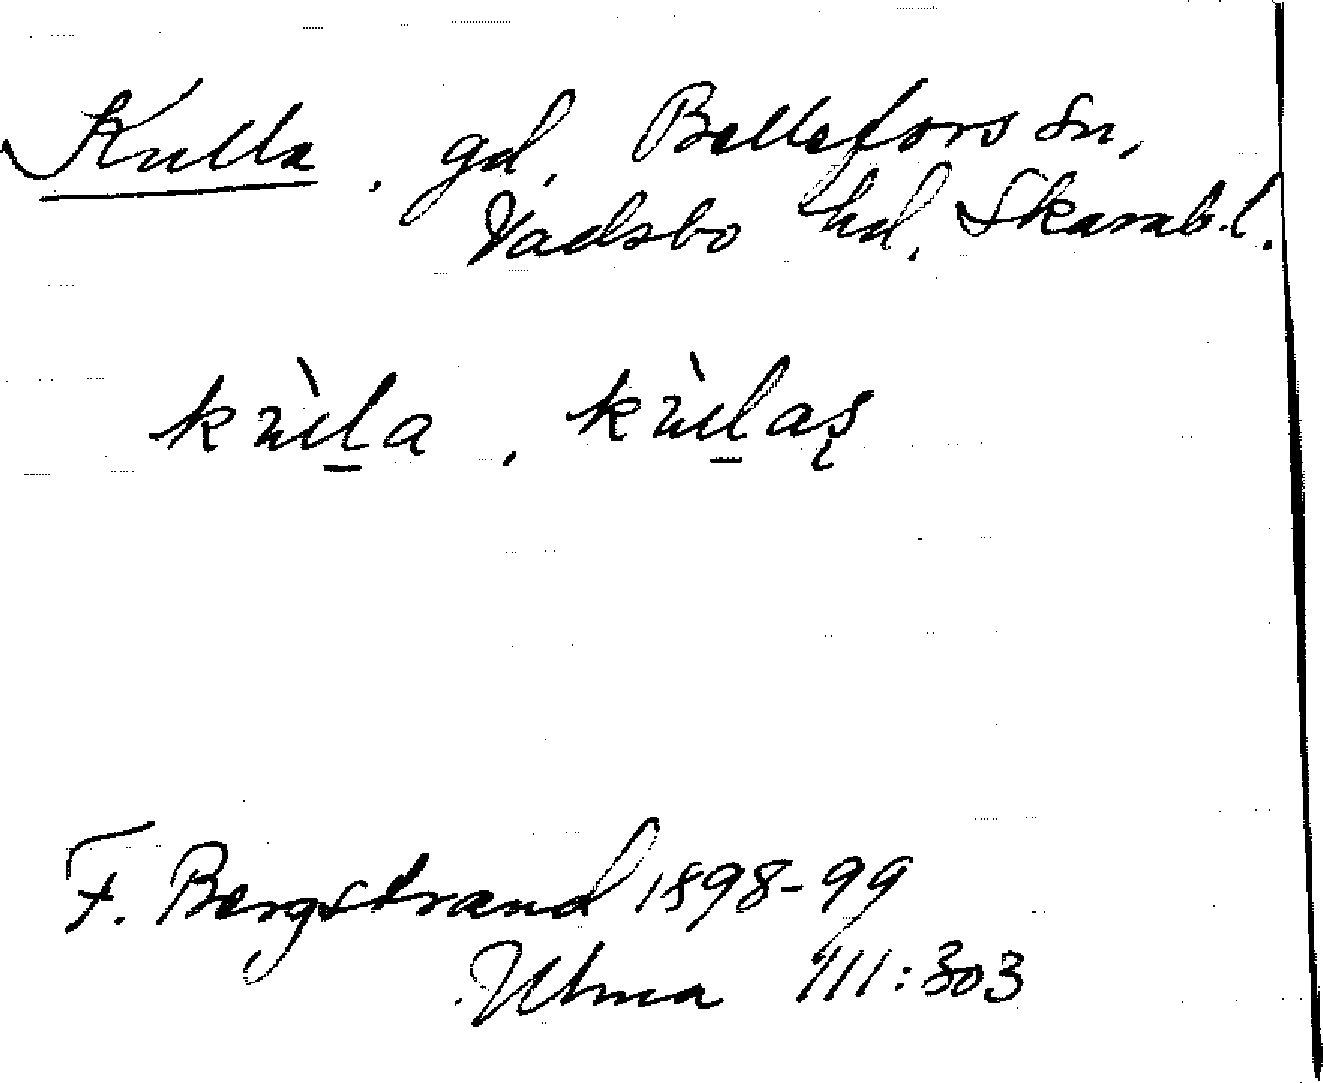 Kulla, gd, Bellefors sn,
Vadsbo hd, Skarab.l.
kùḻa, kùḻas̨
F. Bergstrand 1898-99
Ulma 111:303